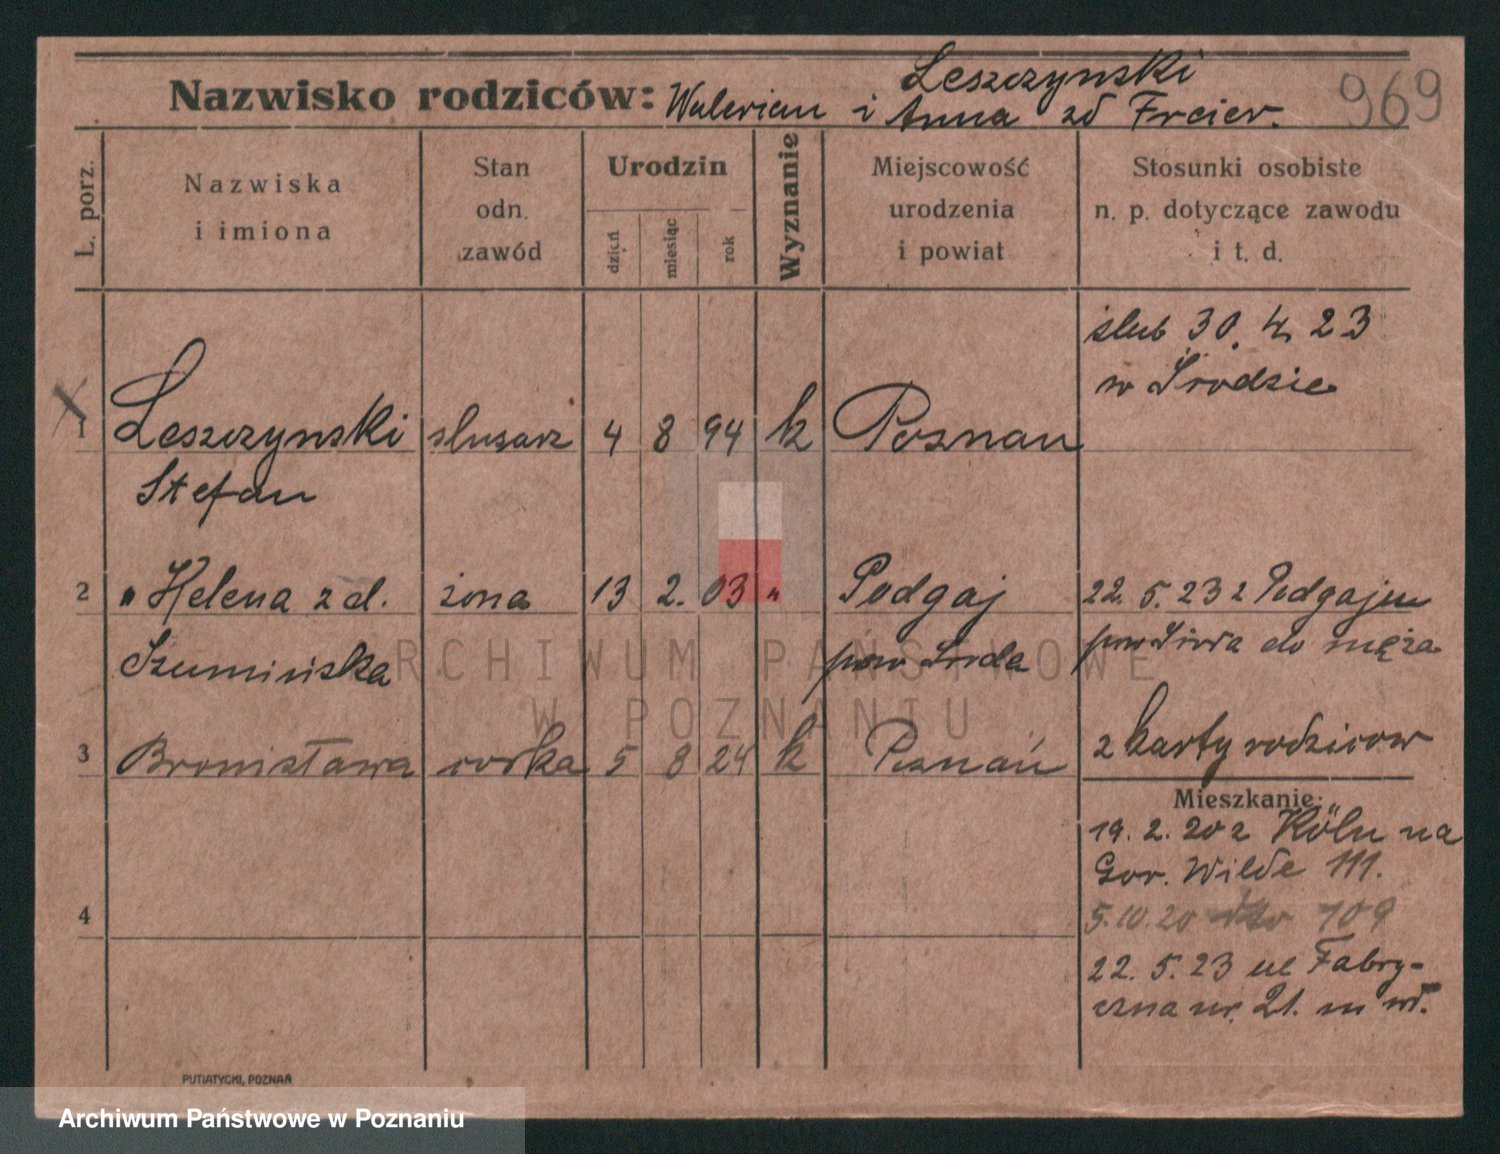 Leszczynski
Nazwisko rodziców: Walerian i Anna zd Freier.
969
L. porz.
Nazwiska
i imiona
Stan
odn.
zawód
Urodzin
dzień
miesiąc
rok
Wyznanie
Miejscowość
urodzenia
i powiat
Stosunki osobiste
n. p. dotyczące zawodu
i t. d.
ślub 30. 4. 23
w Srodzie
1 Leszczynski slusarz 4 8 94 k Poznan
Stefan
2 " Helena z d. żona 13 2. 03 " Podgaj 22. 5. 23 z Podgaju
Szumińska pow Sroda pow Sroda do męża
3 Bronisława corka 5 8 24 k Poznań z karty rodzicow
Mieszkanie:
19. 2. 20 z Köln na
Gor. Wilde 111.
5. 10. 20 109
22. 5. 23 ul Fabry-
czna nr. 21. m wł.
4
PUTIATYCKI, POZNAŃ
ARCHIWUM PAŃSTWOWE
W POZNANIU
Archiwum Państwowe w Poznaniu